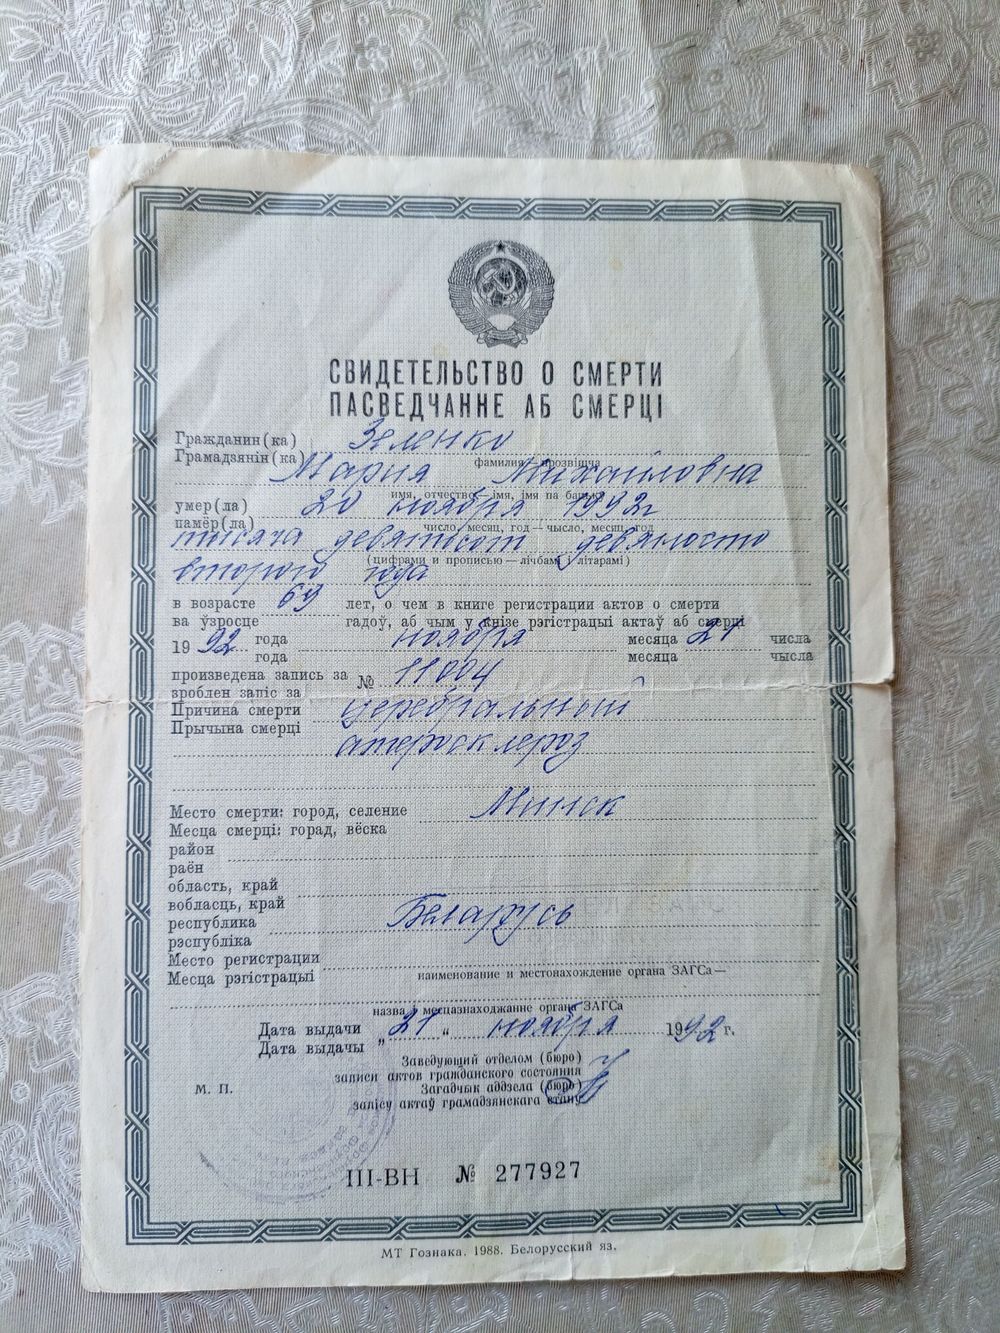 СВИДЕТЕЛЬСТВО О СМЕРТИ
ПАСВЕДЧАННЕ АБ СМЕРЦІ
Гражданин(ка) Зеленко
Грамадзянін(ка)
фамилия—прозвішча
Мария Михайловна
имя, отчество—імя, імя па бацьку
умер(ла) 20 ноября 1992г
памёр(ла)
число, месяц, год—чысло, месяц, год
тысяча девятьсот девяносто
(цифрами и прописью—лічбамі і літарамі)
второго года
в возрасте 69 лет, о чем в книге регистрации актов о смерти
ва ўзросце гадоў, аб чым у кнізе рэгістрацыі актаў аб смерці
1992 года ноября месяца 21 числа
года месяца чысла
произведена запись за № 11004
зроблен запіс за
Причина смерти Церебральный
Прычына смерці
атеросклероз
Место смерти: город, селение Минск
Месца смерці: горад, вёска
район
раён
область, край
вобласць, край
республика Беларусь
рэспубліка
Место регистрации
Месца рэгістрацыі наименование и местонахождение органа ЗАГСа—
назва і месцазнаходжанне органа ЗАГСа
Дата выдачи „21“ ноября 1992 г.
Дата выдачы
Заведующий отделом (бюро)
записи актов гражданского состояния
М. П. Загадчык аддзела (бюро)
запісу актаў грамадзянскага стану
III-ВН № 277927
МТ Гознака. 1988. Белорусский яз.